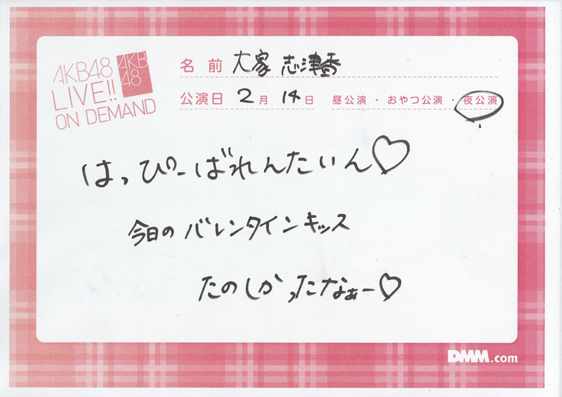 AKB48
LIVE!!
ON DEMAND
AKB
48
名前 大家 志津香
公演日 2月 14日 昼公演・おやつ公演・夜公演
はっぴーばれんたいん♡
今日のバレンタインキッス
たのしかったなぁー♡
DMM.com